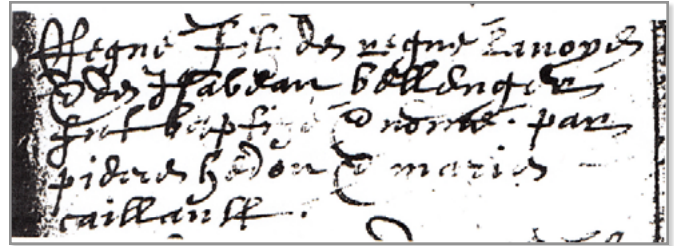 Regne fil de regne Lanoyes
& de Ysabeau bellenger
fut baptize & nomé par
pierre hedou & marie
caillault.